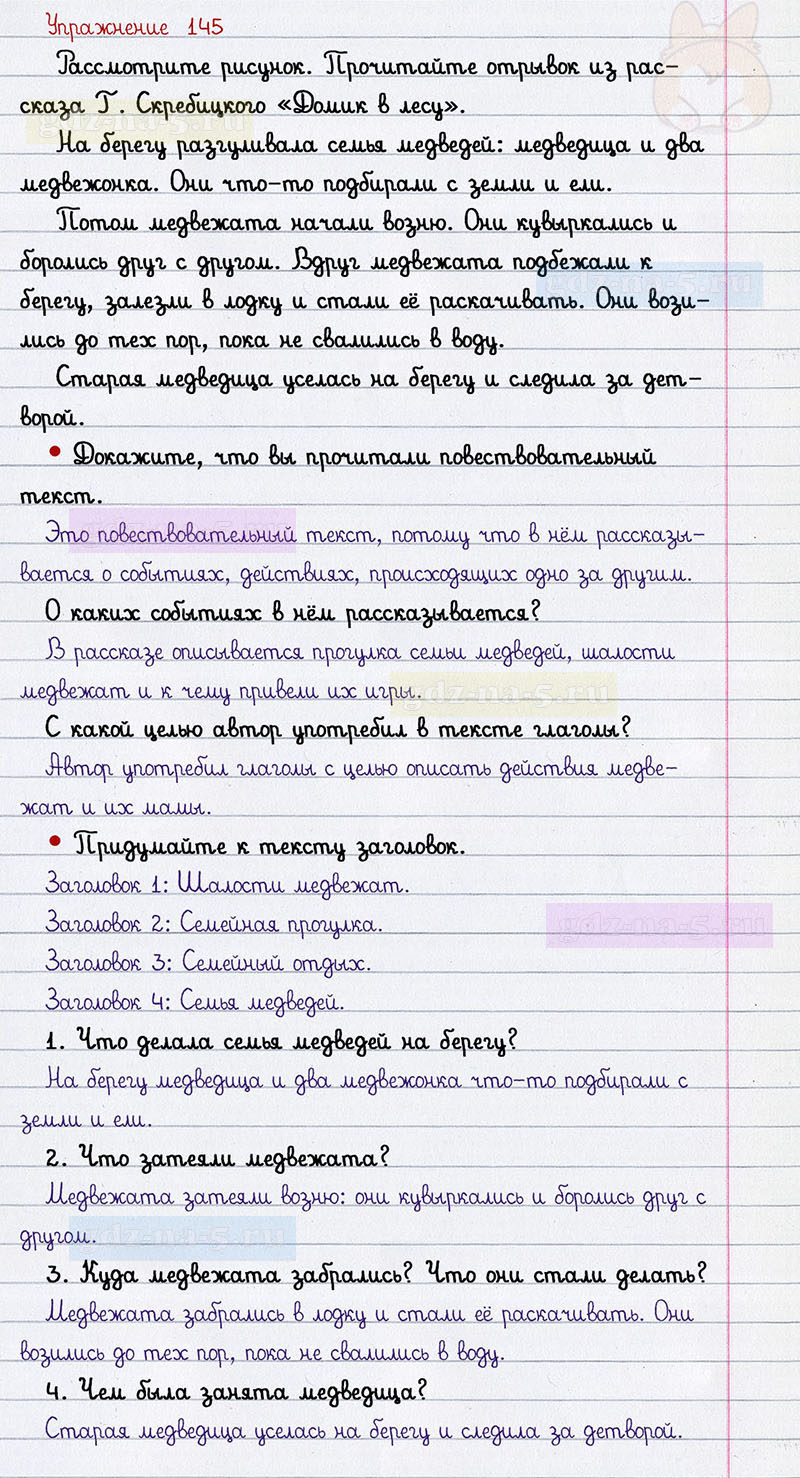 Упражнение 145
Рассмотрите рисунок. Прочитайте отрывок из рас-
сказа Г. Скребицкого «Домик в лесу».
gdz-na-5.ru
На берегу разгуливала семья медведей: медведица и два
медвежонка. Они что-то подбирали с земли и ели.
Потом медвежата начали возню. Они кувыркались и
боролись друг с другом. Вдруг медвежата подбежали к
gdz-na-5.ru
берегу, залезли в лодку и стали её раскачивать. Они вози-
лись до тех пор, пока не свалились в воду.
Старая медведица уселась на берегу и следила за дет-
ворой.
• Докажите, что вы прочитали повествовательный
текст.
Это повествовательный текст, потому что в нём рассказы-
вается о событиях, действиях, происходящих одно за другим.
О каких событиях в нём рассказывается?
В рассказе описывается прогулка семьи медведей, шалости
медвежат и к чему привели их игры.
gdz-na-5.ru
С какой целью автор употребил в тексте глаголы?
Автор употребил глаголы с целью описать действия медве-
жат и их мамы.
• Придумайте к тексту заголовок.
Заголовок 1: Шалости медвежат.
Заголовок 2: Семейная прогулка.
gdz-na-5.ru
Заголовок 3: Семейный отдых.
Заголовок 4: Семья медведей.
1. Что делала семья медведей на берегу?
На берегу медведица и два медвежонка что-то подбирали с
земли и ели.
2. Что затеяли медвежата?
Медвежата затеяли возню: они кувыркались и боролись друг с
другом.
gdz-na-5.ru
3. Куда медвежата забрались? Что они стали делать?
Медвежата забрались в лодку и стали её раскачивать. Они
возились до тех пор, пока не свалились в воду.
4. Чем была занята медведица?
Старая медведица уселась на берегу и следила за детворой.